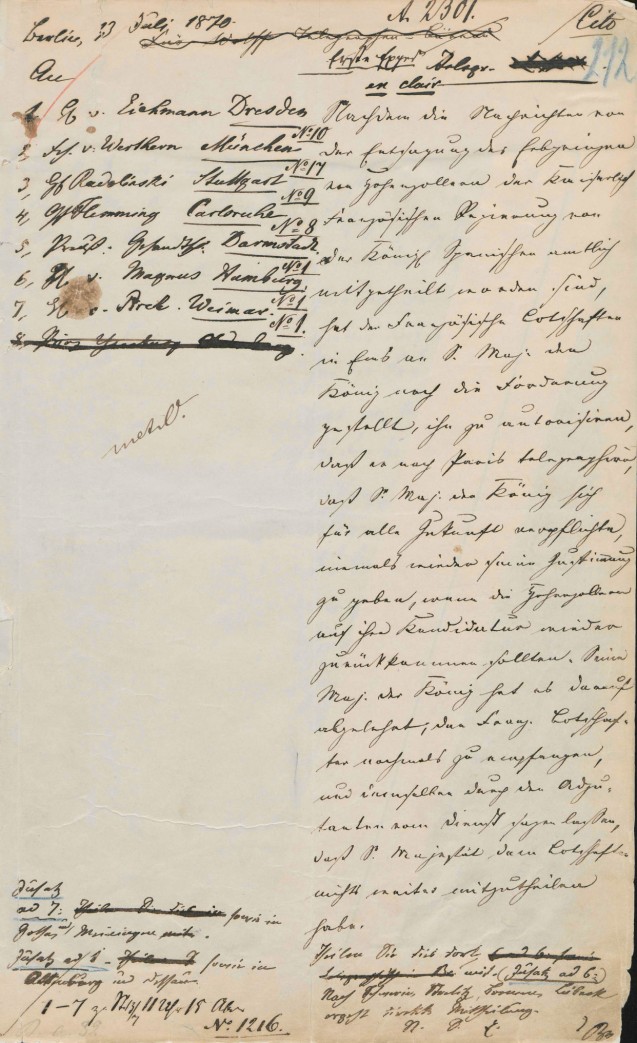 A. 2301.
Cito
Berlin, 13 Juli 1870.
212
Erste Exped.
Telegr.
en clair
An
1, v. Eichmann Dresden
No 10
2, Frh. v. Werthern München
No 17
3, Gf Radolinski Stuttgart
No 9
4, Gf Flemming Carlsruhe
No 8
5, Preuß. Gesandtsch. Darmstadt
No 1
6, v. Magnus Hamburg
No 1
7, Weimar.
No 1.
Nachdem die Nachrichten von
der Entsagung des Erbprinzen
von Hohenzollern der Kaiserlich
Französischen Regierung von
der Königl Spanischen amtlich
mitgetheilt worden sind,
hat der Französische Botschafter
in Ems an S. Maj. den
König noch die Forderung
gestellt, ihn zu autorisiren,
daß er nach Paris telegraphire,
daß S. Maj. der König sich
für alle Zukunft verpflichte,
niemals wieder seine Zustimmung
zu geben, wenn die Hohenzollern
auf ihre Kandidatur wieder
zurückkommen sollten. Seine
Maj. der König hat es darauf
abgelehnt, den Franz. Botschaf-
ter nochmals zu empfangen,
und demselben durch den Adju-
tanten vom Dienst sagen lassen,
daß S. Majestät dem Botschafter
nichts weiter mitzutheilen
habe.
Theilen Sie dies dort
mit. (Zusatz ad 6:
Nach Schwerin Strelitz Bremen Lübeck
ergeht direkte Mittheilung.
Zusatz
ad 7: sowie in
Gotha Meiningen
Zusatz ad 1. sowie in
Altenburg und Dessau
1–7 11 Uhr 15
No 1216.